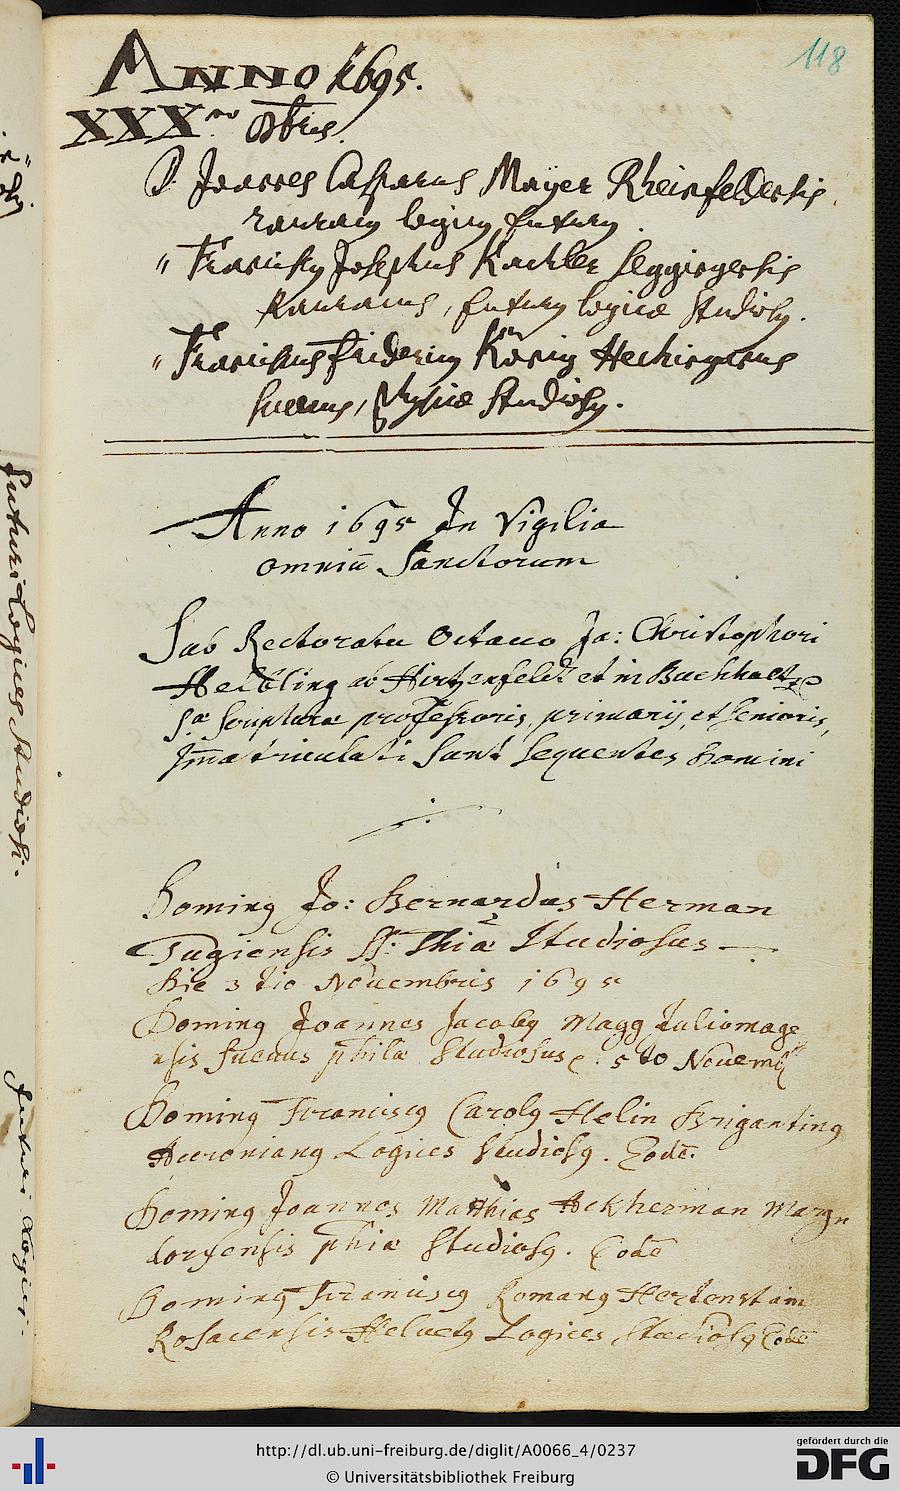 118
ANNO 1695.
XXX.mo 8bris.
D. Joannes Casparus Mayer Rheinfeldensis
rauracus logicus futurus.
" Franciscus Josephus Kachler Seggingensis
Rauracus, futurus logicæ Studiosus.
" Franciscus Fridericus König Hechinganus
Suevus, Physicæ Studiosus.
Anno 1695 In Vigilia
omniū Sanctorum
Sub Rectoratu Octauo Jo: Christophori
Helbling ab Hirtzenfeldt et in Buechholtz
S.æ Scripturæ professoris, primarij, et Senioris,
Jm̄atriculati Sunt Sequentes Domini
Dominus Jo: Bernardus Herman
Tugiensis SS. Thiæ Studiosus
Die 3 tio Nouembris 1695
Dominus Joannes Jacobus Magg Juliomage
nsis Sueuus philæ Studiosus 5 to Nouemb
Dominus Franciscus Carolus Helin Brigantinus
Acronianus Logices Studiosus. Eodē.
Dominus Joannes Matthias Ackherman
dorfensis phiæ Studiosus. Eodē
Dominus Franciscus Romanus Hertenstain
Rosacensis Helvetus Logices Studiosus Eodē
futuri Logices studiosi.
futuri Logici.
http://dl.ub.uni-freiburg.de/diglit/A0066_4/0237
© Universitätsbibliothek Freiburg
gefördert durch die
DFG